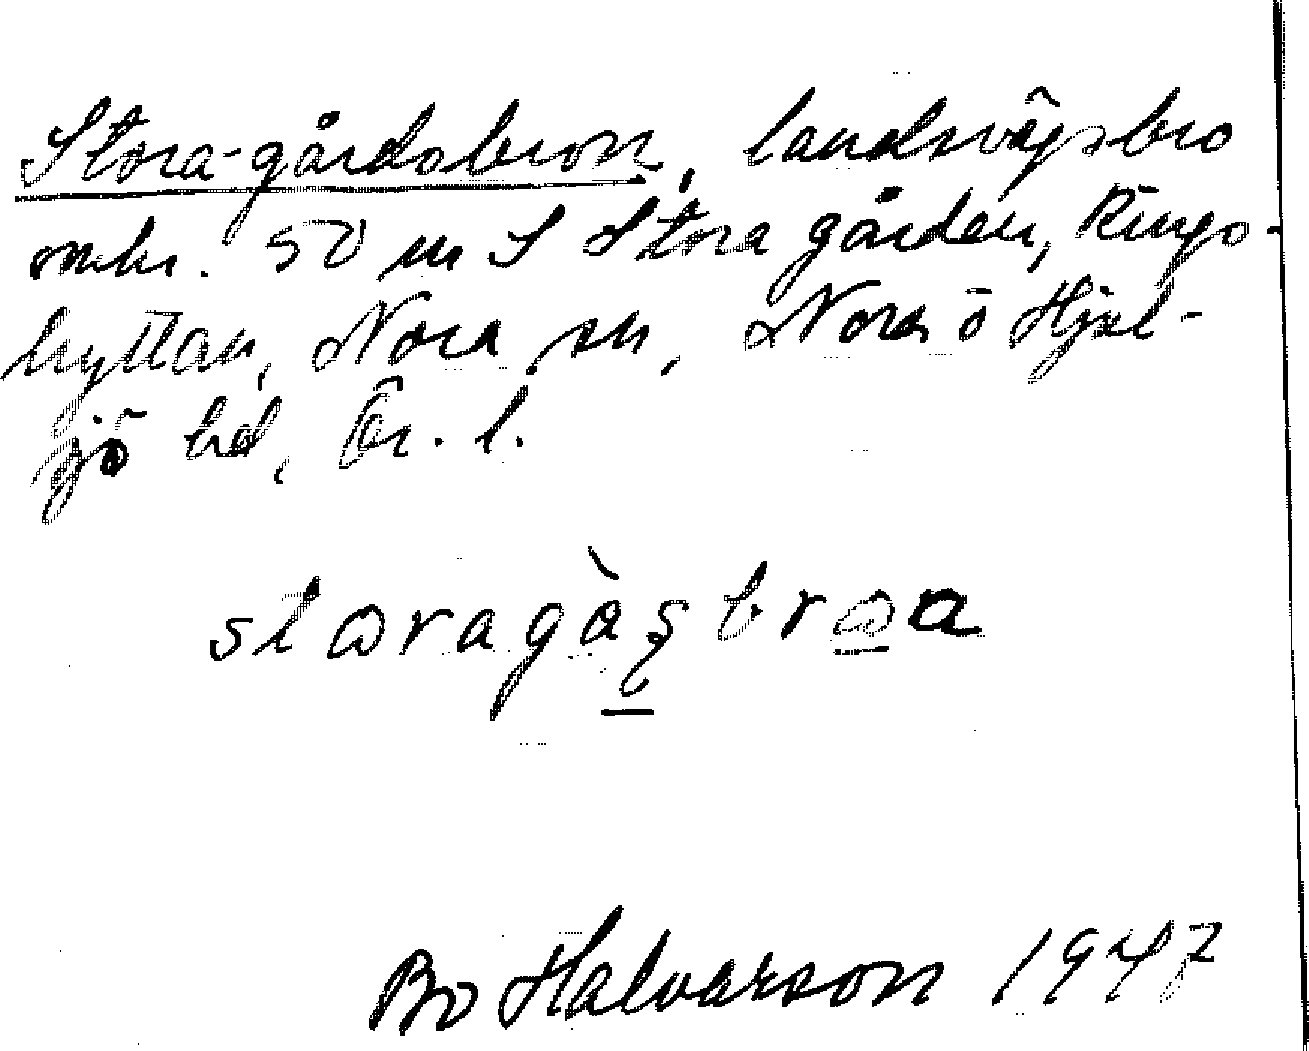 Stora-gårdsbron, landsvägsbro
omkr. 50 m S Stora gården, Rings-
hyttan, Nora sn, Nora o Hjul-
sjö hd, Ör. l.
Bo Halvarson 1947